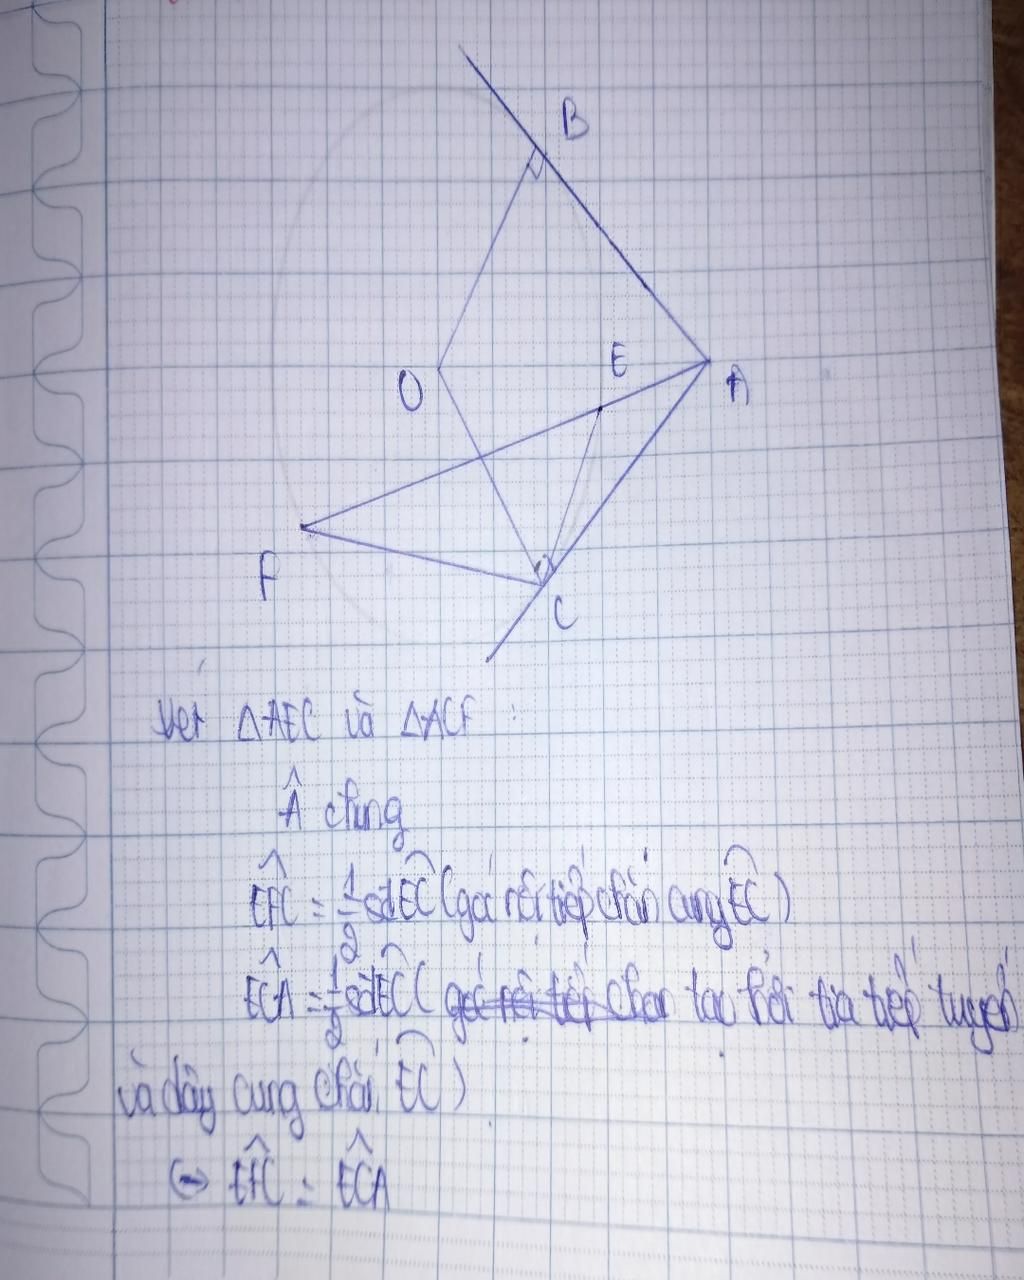 B
E
O
A
F
C
Xét ΔAEC và ΔACF :
Â chung
$\widehat{EFC}$ = $\frac{1}{2}$ sđ $\overset{\frown}{EC}$ (góc nội tiếp chắn cung $\overset{\frown}{EC}$)
$\widehat{ECA}$ = $\frac{1}{2}$ sđ $\overset{\frown}{EC}$ ( ~~góc nội tiếp chắn~~ tạo bởi tia tiếp tuyến
và dây cung chắn $\overset{\frown}{EC}$)
⇔ $\widehat{EFC}$ = $\widehat{ECA}$